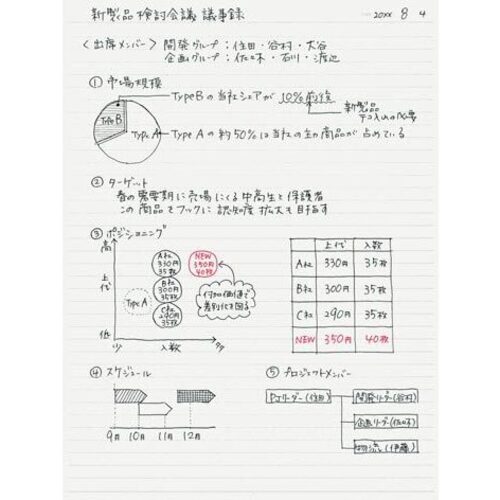 新製品検討会議 議事録
20XX 8 4
〈出席メンバー〉 開発グループ：住田・谷村・大谷
企画グループ：佐々木・石川・渡辺
① 市場規模
TypeBの当社シェアが10%前後
新製品
テコ入れの必要
TypeB
TypeA
TypeAの約50%は当社の主力商品が占めている
② ターゲット
春の需要期に売場にくる中高生と保護者
この商品をフックに認知度拡大も目指す
③ ポジショニング
高
上代
低
少 入数 多
A社
330円
35枚
B社
300円
35枚
C社
290円
35枚
TypeA
NEW
350円
40枚
付加価値で
差別化を図る
上代 入数
A社 330円 35枚
B社 300円 35枚
C社 290円 35枚
NEW 350円 40枚
④ スケジュール
9月 10月 11月 12月
⑤ プロジェクトメンバー
PJリーダー(住田)
開発リーダー(谷村)
企画リーダー(佐々木)
物流(伊藤)